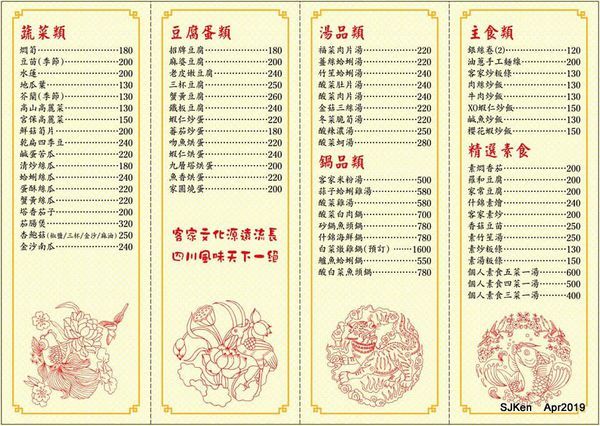 蔬菜類
燜筍 180
豆苗(季節) 200
水蓮 200
地瓜葉 130
芥蘭(季節) 130
高山高麗菜 150
宮保高麗菜 150
鮮菇筍片 200
乾扁四季豆 240
鹹蛋苦瓜 220
清炒絲瓜 180
蛤蜊絲瓜 240
蛋酥絲瓜 220
蟹黃絲瓜 220
塔香茄子 200
茄腸煲 320
杏鮑菇(椒鹽/三杯/金沙/麻油) 250
金沙南瓜 240
豆腐蛋類
招牌豆腐 180
麻婆豆腐 200
老皮嫩豆腐 240
三杯豆腐 250
蟹黃豆腐 260
鐵板豆腐 240
蝦仁炒蛋 240
蕃茄炒蛋 180
吻魚烘蛋 220
蝦仁烘蛋 240
九層塔烘蛋 220
魚香烘蛋 220
家園燒蛋 200
客家文化源遠流長
四川風味天下一絕
湯品類
福菜肉片湯 220
薑絲蛤蜊湯 220
竹笙蛤蜊湯 220
酸菜肚片湯 240
酸菜肉片湯 240
金菇三絲湯 220
冬菜脆筍湯 220
酸辣濃湯 250
酸菜蚵湯 280
鍋品類
客家米粉湯 500
蒜子蛤蜊雞湯 580
酸菜雞湯 580
酸菜白肉鍋 700
砂鍋魚頭鍋 680
什錦海鮮鍋 780
白菜燉雞鍋(預訂) 1600
鱸魚蛤蜊鍋 550
酸白菜魚頭鍋 780
主食類
銀絲卷(2) 120
油蔥手工麵線 200
客家炒粄條 150
肉絲炒飯 150
牛肉炒飯 150
XO蝦仁炒飯 150
鹹魚炒飯 150
櫻花蝦炒飯 150
精選素食
素燜香茄 200
羅和豆腐 200
家常豆腐 200
什錦素燴 240
客家素炒 240
香菇豆苗 250
素竹笙湯 250
素炒粄條 150
素湯粄條 150
個人素食五菜一湯 600
個人素食四菜一湯 500
個人素食三菜一湯 400
SJKen Apr2019